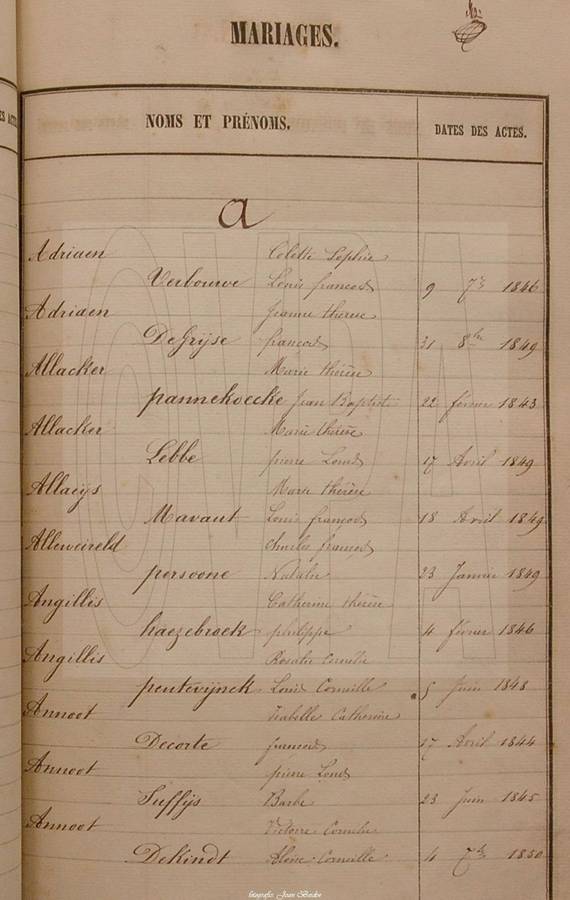 MARIAGES.
NOMS ET PRÉNOMS. DATES DES ACTES.
a
Adriaen Colette Sophie
Verbouwe Louis francois 9 7re 1846
Adriaen Jeanne thérèse
DeGrijse francois 31 8bre 1849
Allacker Marie thérèse
pannekoecke Jean Baptiste 22 février 1843
Allacker Marie thérèse
Lebbe pierre Louis 17 Avril 1849
Allaeijs Marie thérèse
Mavaut Louis francois 18 Avril 1849
Alleweireld Charles francois
persoone Natalie 23 Janvier 1849
Angillis Catherine thérèse
haezebroek philippe 4 février 1846
Angillis Rosalie Cornelie
peuterijnck Louis Corneille 5 Juin 1848
Annoot Isabelle Catherine
Decorte francois 17 Avril 1844
Annoot pierre Louis
Suffijs Barbe 23 Juin 1845
Annoot Victoire Cornelie
DeKindt Aloise Corneille 4 7re 1850
CVRA